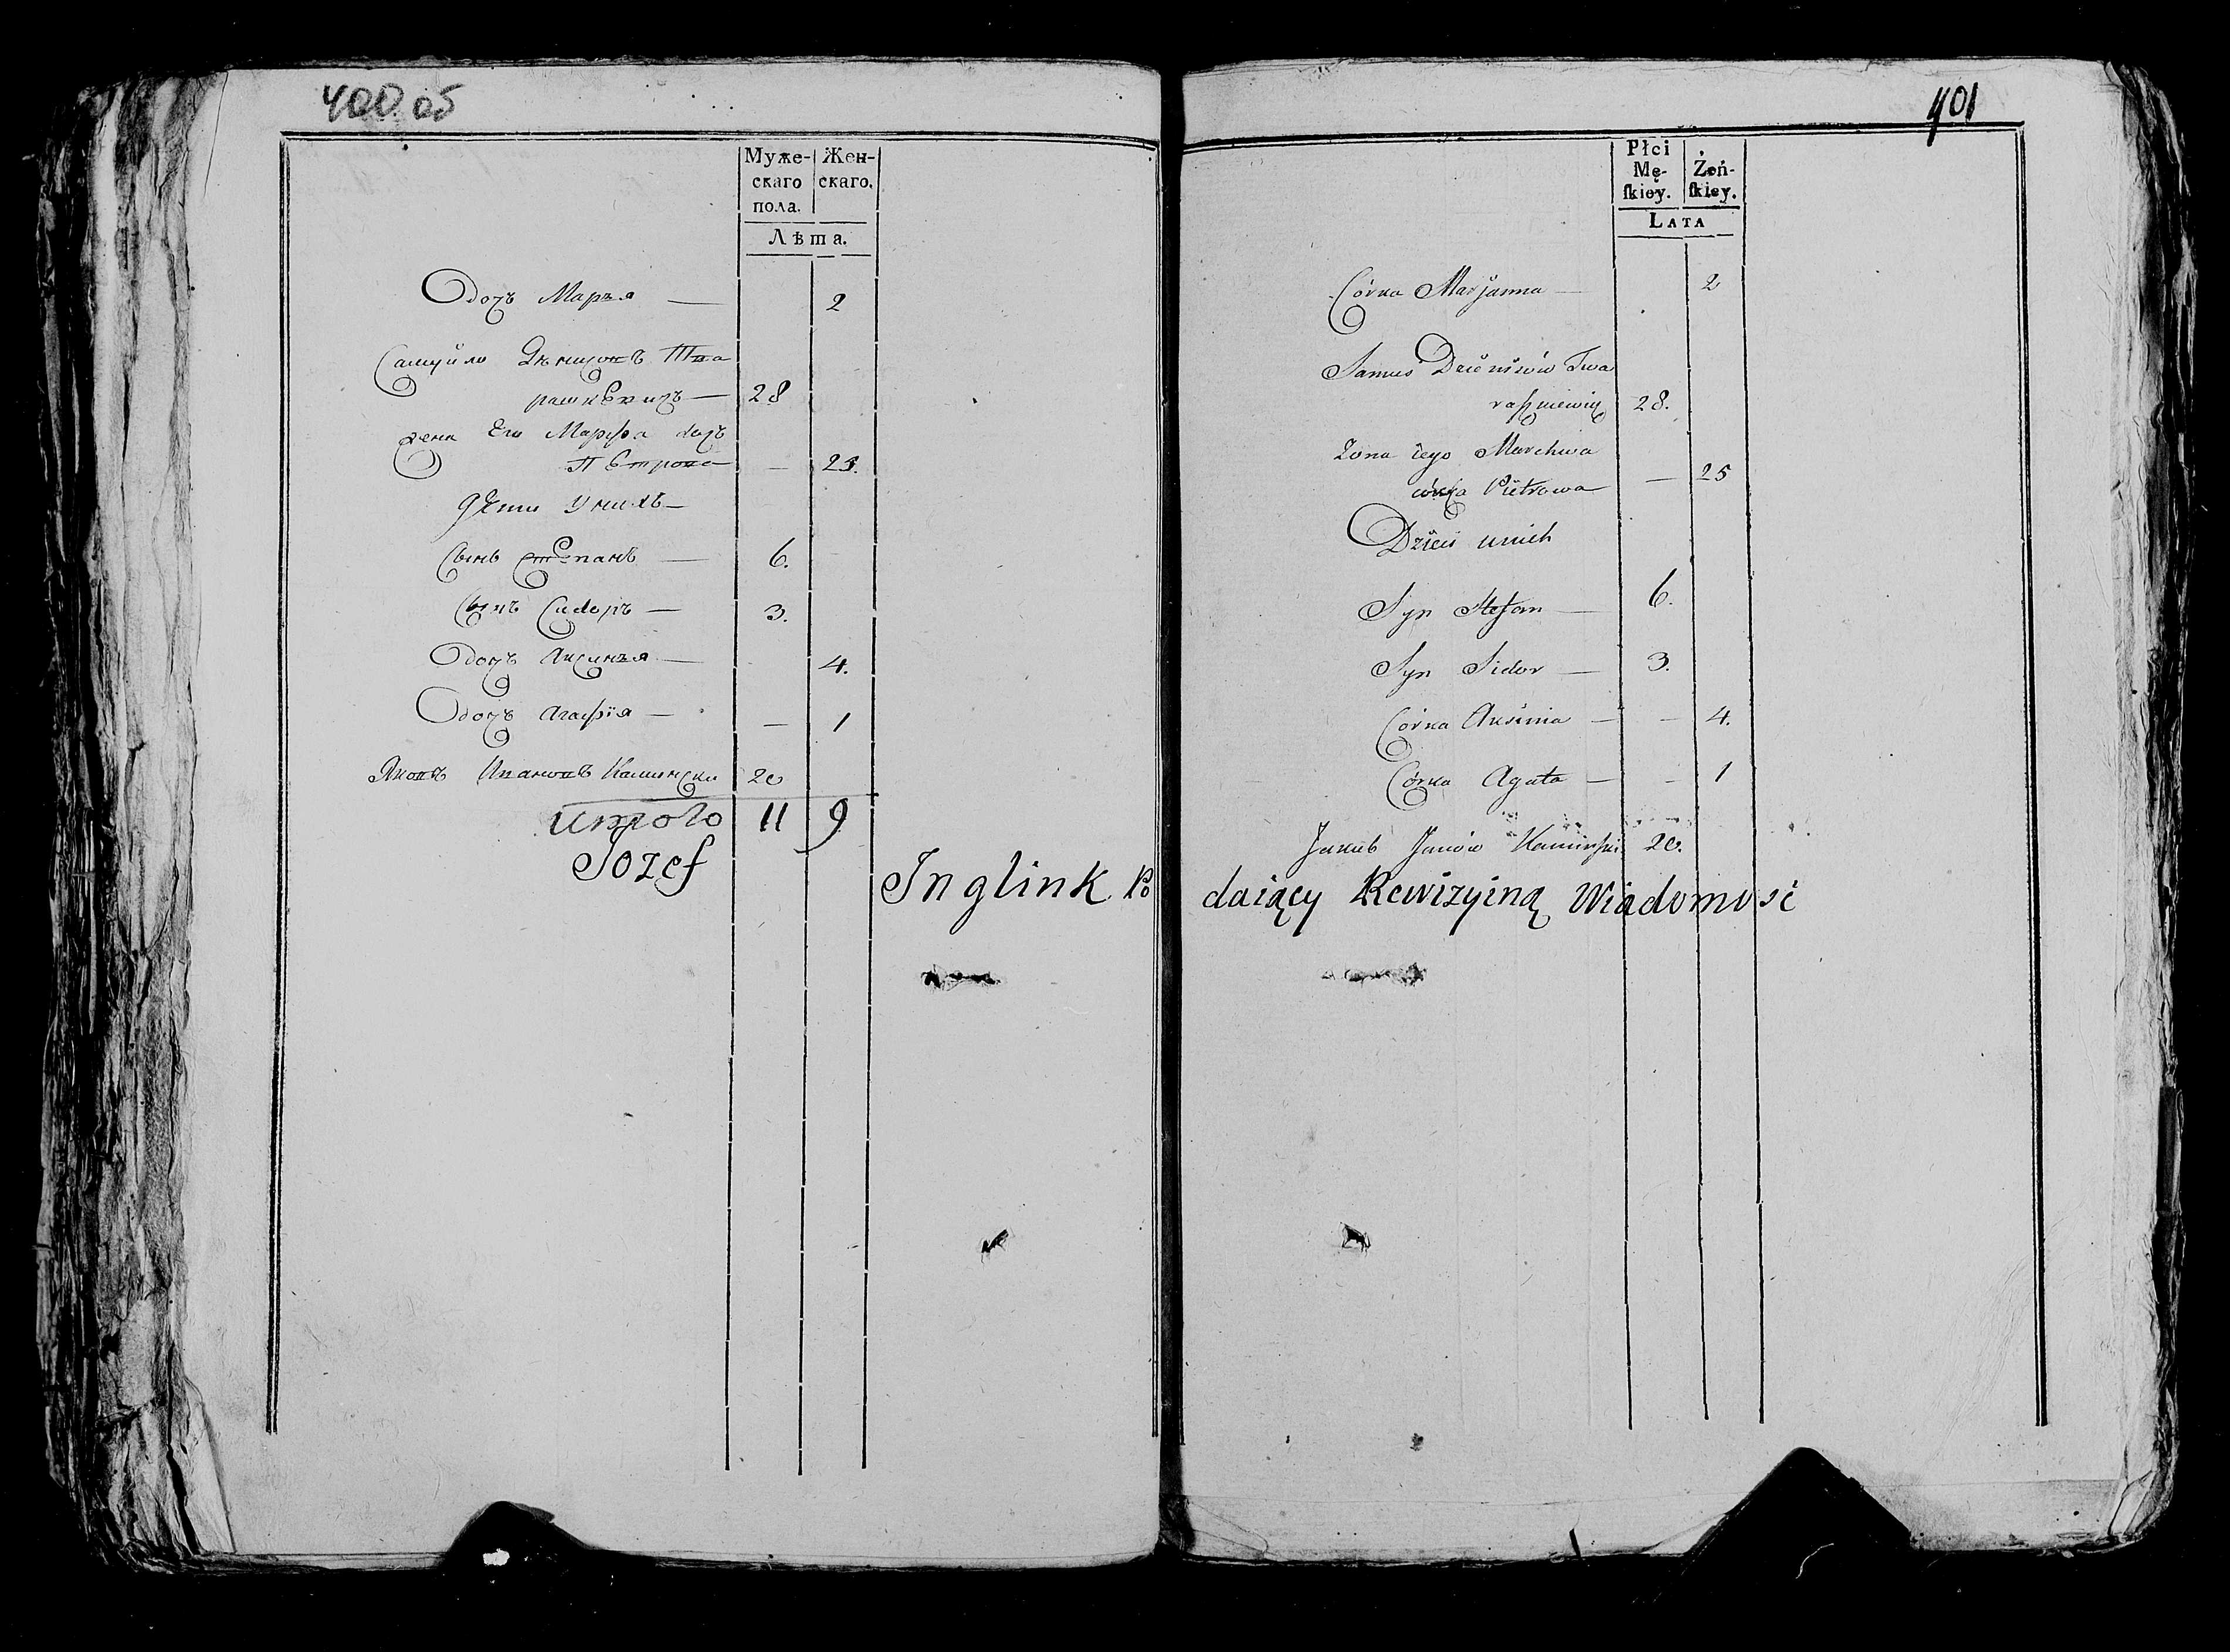 400 об
Муже-
скаго
пола.
Жен-
скаго.
Лѣта.
Дочь Марья — 2
Самуйло Дѣнисовъ Тва
рашкевичъ — 28
жена Его Марфа дочь
Петрова — 25.
дѣти у нихъ —
Сынъ Степанъ — 6.
Сынъ Сидоръ — 3.
Дочь Аксинья — 4.
Дочь Агафія — — 1
Яковъ Ивановъ Камински 20
Итого 11 9
Jozef Inglink Po
401
Płci
Mę-
ſkiey.
Żeń-
ſkiey.
LATA
Córka Marjanna — 2
Samuś Dziênisów Twa
raſzkiewicz 28.
Żona iego Marchwa
córka Piêtrowa — 25
Dzieci u nich
Syn Stefan — 6.
Syn Sidor — 3.
Córka Aксinia — — 4.
Córka Agata — — 1
Jakub Janów Kamiński 20.
daiący Rewizyiną Wiadomość